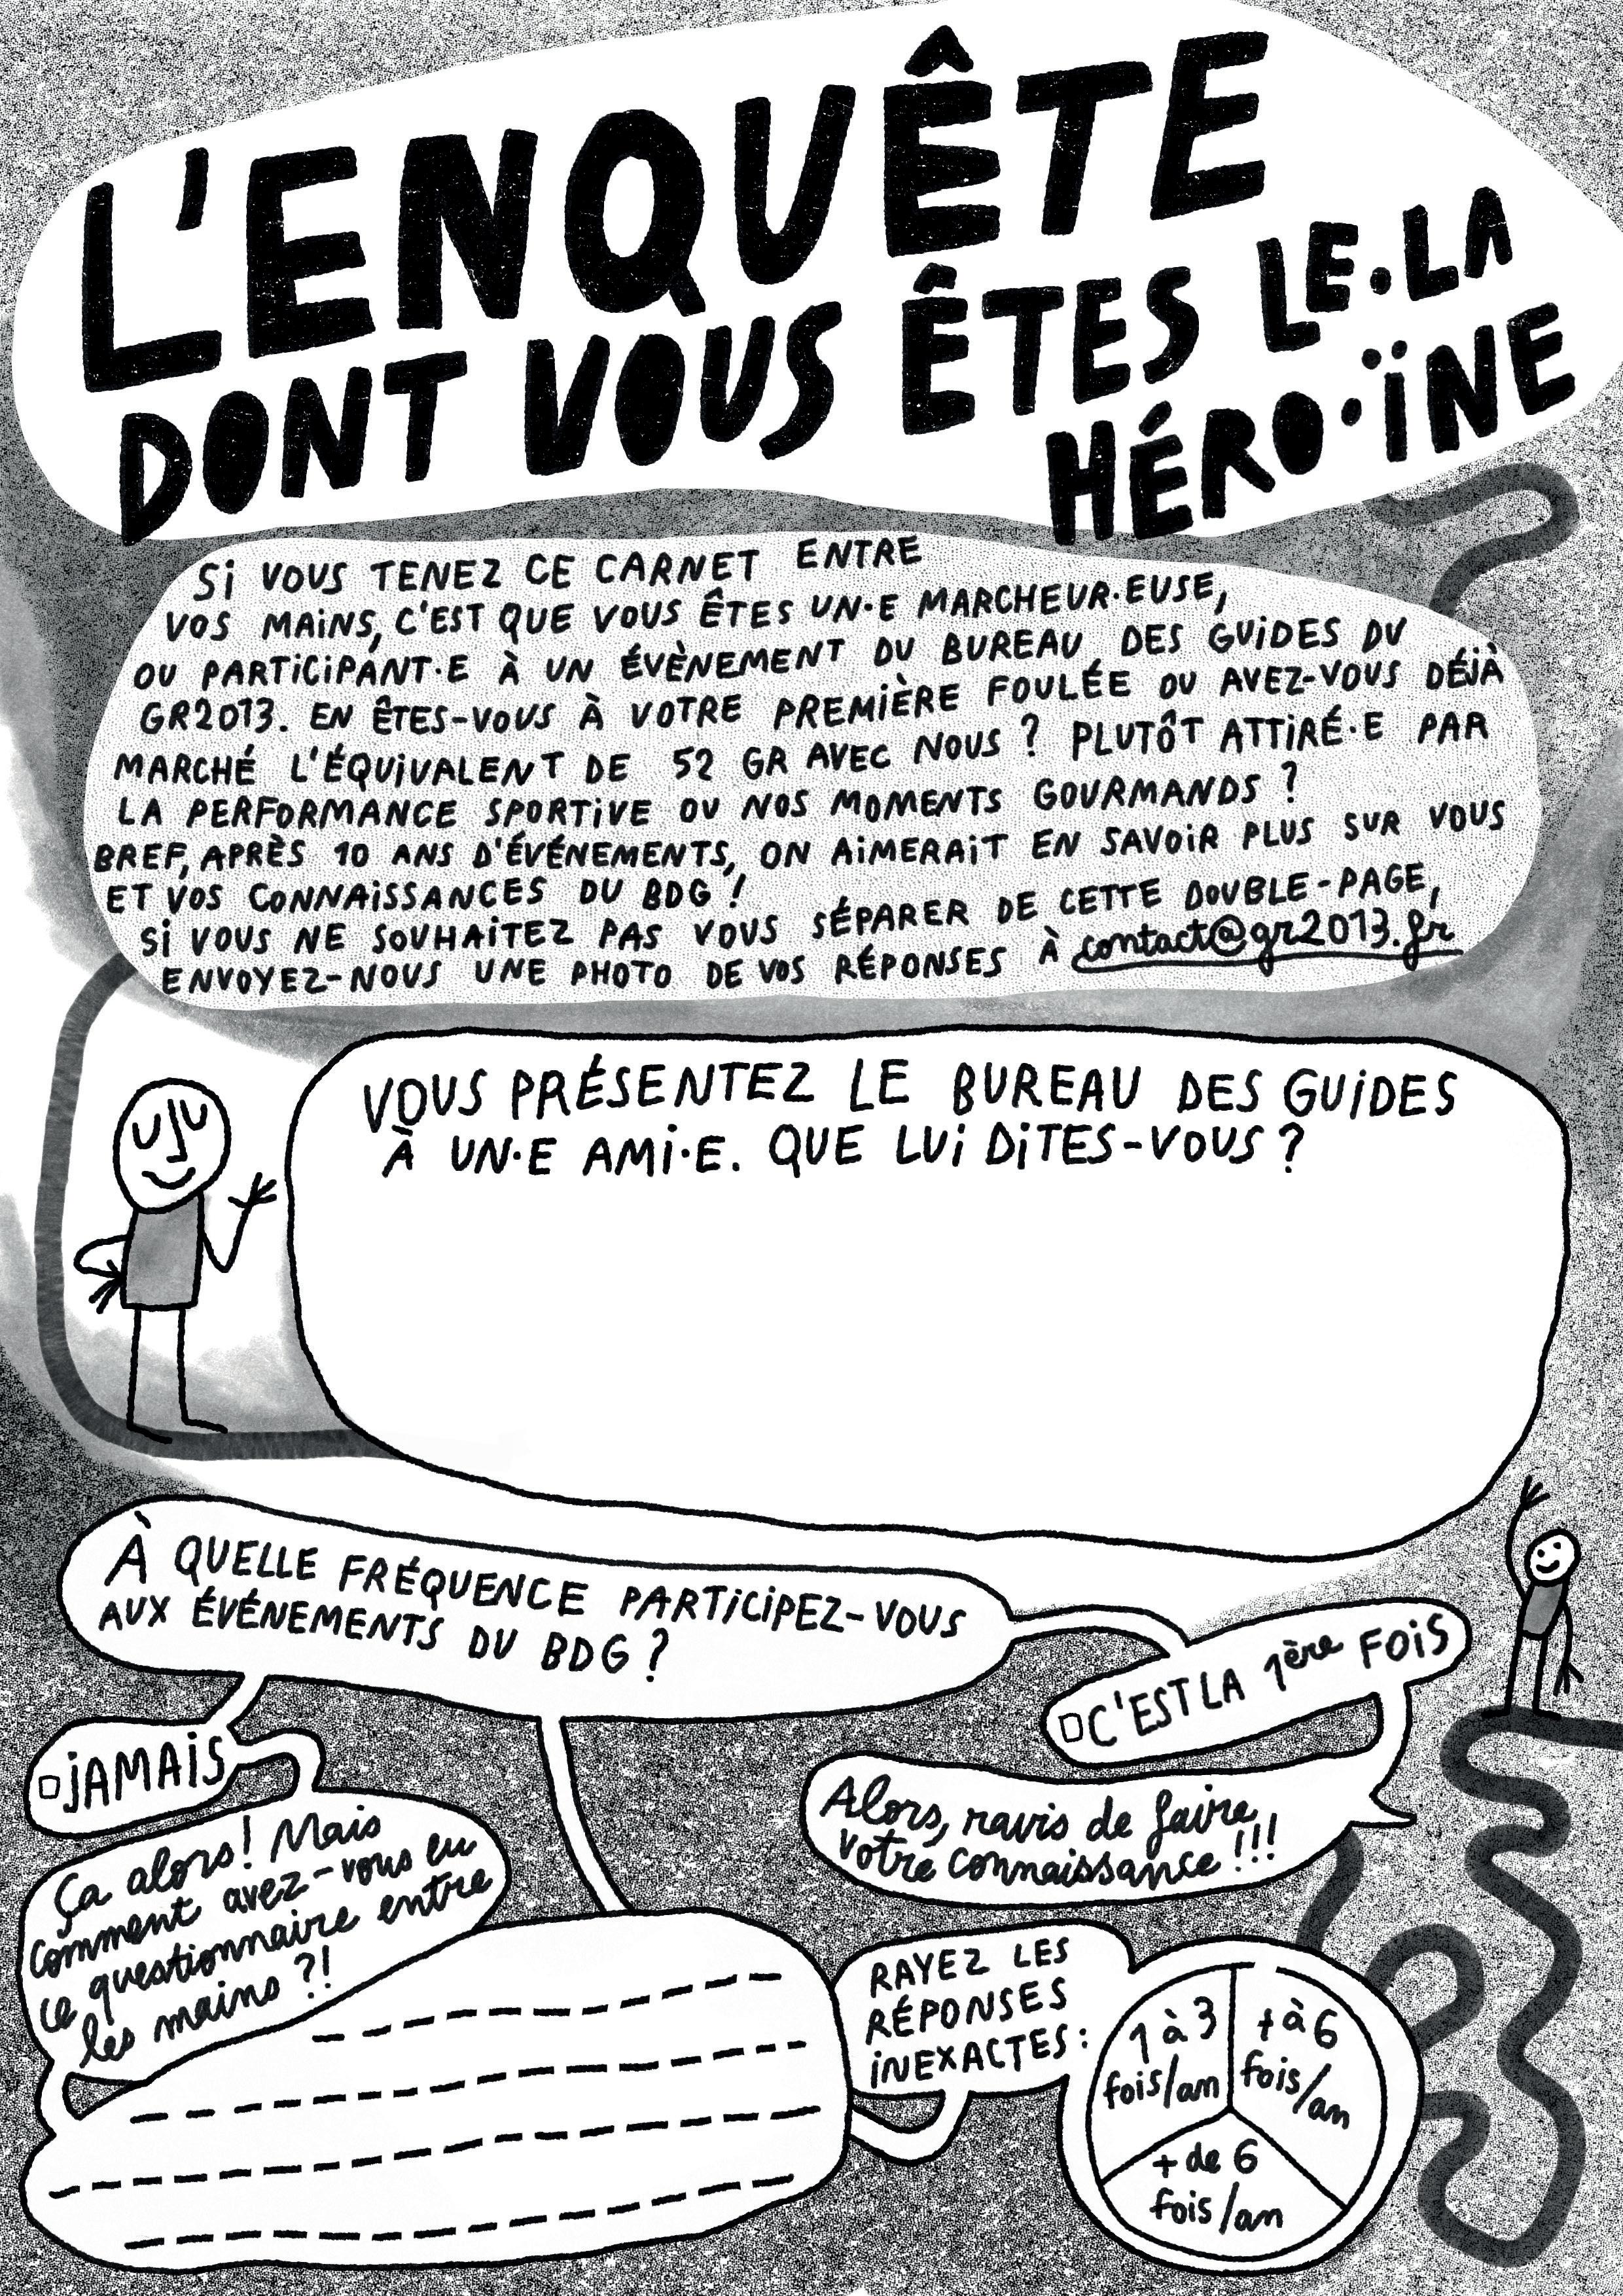 L'ENQUÊTE
DONT VOUS ÊTES LE·LA
HÉRO·ÏNE
Si VOUS TENEZ CE CARNET ENTRE
VOS MAiNS, C'EST QUE VOUS ÊTES UN·E MARCHEUR·EUSE,
OU PARTiCiPANT·E À UN ÉVÈNEMENT DU BUREAU DES GUiDES DU
GR2013. EN ÊTES-VOUS À VOTRE PREMiÈRE FOULÉE OU AVEZ-VOUS DÉJÀ
MARCHÉ L'ÉQUiVALENT DE 52 GR AVEC NOUS ? PLUTÔT ATTiRÉ·E PAR
LA PERFORMANCE SPORTiVE OU NOS MOMENTS GOURMANDS ?
BREF, APRÈS 10 ANS D'ÉVÉNEMENTS, ON AiMERAiT EN SAVOiR PLUS SUR VOUS
ET VOS CONNAiSSANCES DU BDG !
Si VOUS NE SOUHAiTEZ PAS VOUS SÉPARER DE CETTE DOUBLE-PAGE,
ENVOYEZ-NOUS UNE PHOTO DE VOS RÉPONSES À contact@gr2013.fr
VOUS PRÉSENTEZ LE BUREAU DES GUiDES
À UN·E AMi·E. QUE LUi DiTES-VOUS ?
À QUELLE FRÉQUENCE PARTiCiPEZ-VOUS
AUX ÉVÉNEMENTS DU BDG ?
C'EST LA 1ère FOiS
JAMAiS
Alors, ravis de faire
votre connaissance !!!
Ça alors ! Mais
comment avez-vous eu
ce questionnaire entre
les mains ?!
RAYEZ LES
RÉPONSES
iNEXACTES :
1 à 3
fois/an
+ à 6
fois/an
+ de 6
fois/an